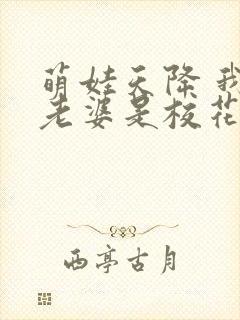 萌娃天降 我
老婆是校花
西亭古月